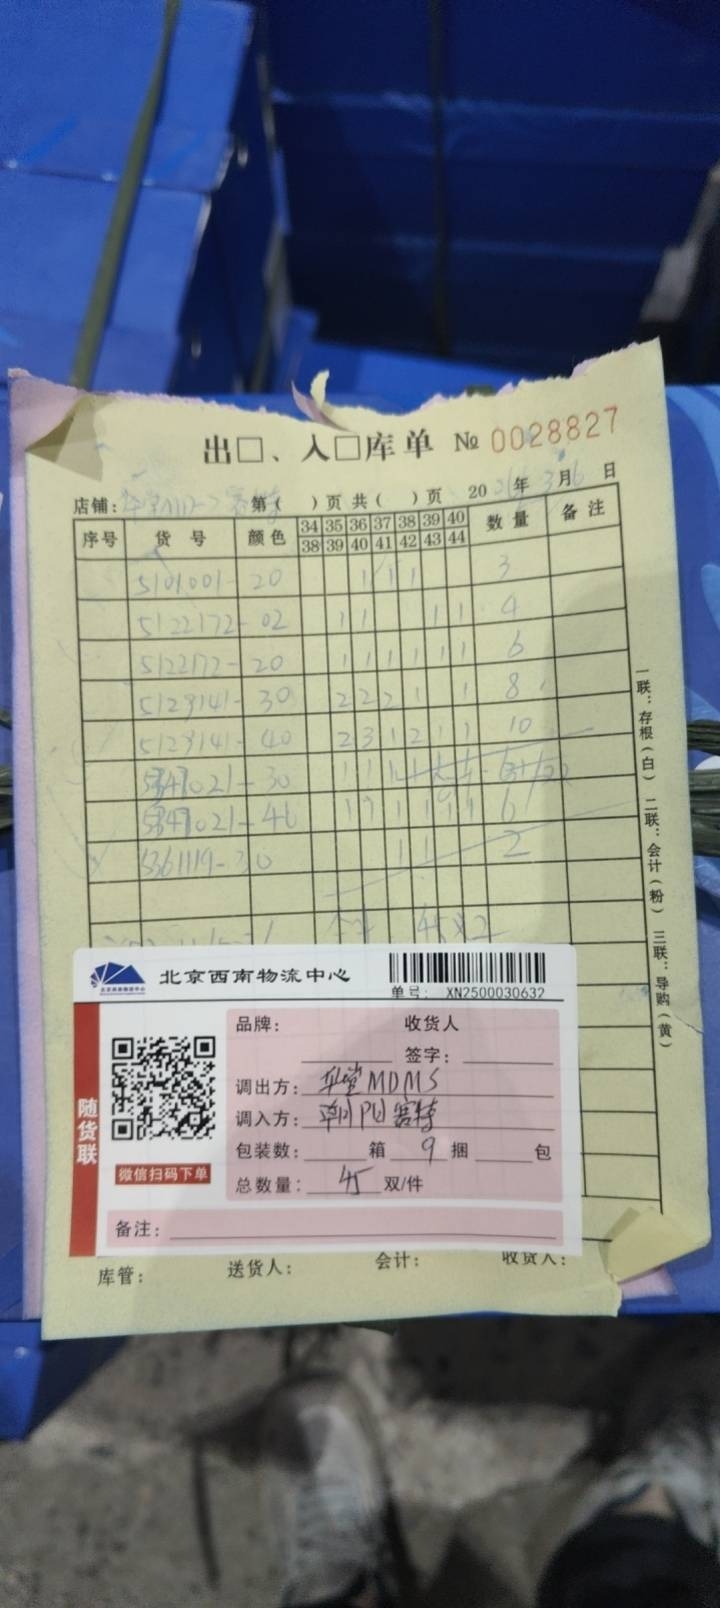 出□、入□库单 № 0028827
店铺: 第( )页 共( )页 20 年 3月6日
序号 货号 颜色 34 35 36 37 38 39 40 数量 备注
38 39 40 41 42 43 44
5101001- 20 1 1 1 3
5122172- 02 1 1 1 1 4
5122172- 20 1 1 1 1 1 1 6
5129141- 30 2 2 2 1 1 8
5129141- 40 2 3 1 2 1 1 10
021- 30 1 1 1
021- 46 1 1 1 1 1 1 6
5361119- 30 1 1 2
一联:存根(白) 二联:会计(粉) 三联:导购(黄)
北京西南物流中心
单号: XN2500030632
随货联
微信扫码下单
品牌: 收货人
签字:
调出方: MDMS
调入方: 赛特
包装数: 箱 9 捆 包
总数量: 45 双/件
备注:
库管: 送货人: 会计: 收货人: